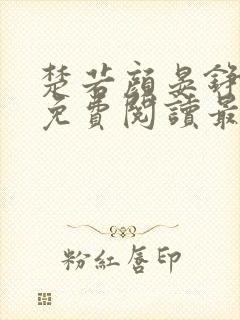 楚若顏晏錚
免費閱讀最
粉紅唇印